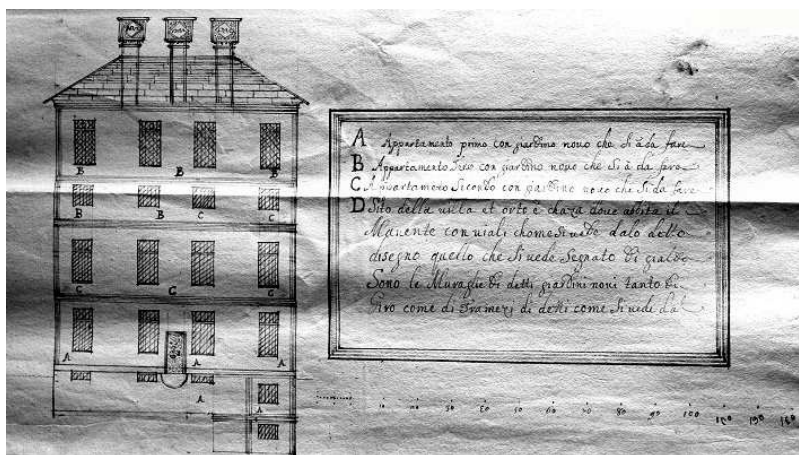 A Appartamento primo con giardino novo che si à da fare
B Appartamento terso con giardino novo che si à da fare
C Appartameno secondo con giardino novo che si da fare
D Sito della villa et orto è chaza dove abita il
Manente con viali chome si vede dalo detto
disegno quello che si vede segnato di giallo
Sono le Muraglie di detti giardini novi tanto di
Giro come di Tramezi di detti come si vede dal
B B B
B B C C
C C C
A A
A
A
10 50 60 70 80 90 100